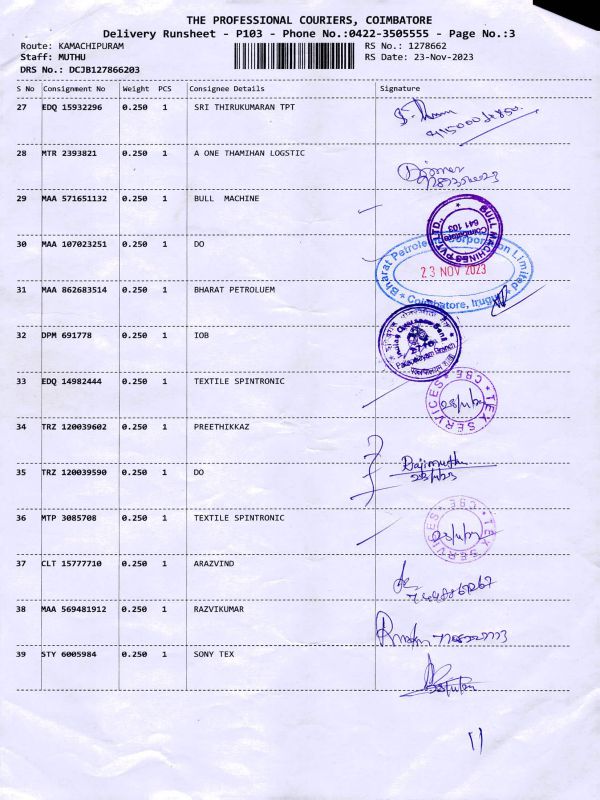 THE PROFESSIONAL COURIERS, COIMBATORE
Delivery Runsheet - P103 - Phone No.:0422-3505555 - Page No.:3
Route: KAMACHIPURAM RS No.: 1278662
Staff: MUTHU RS Date: 23-Nov-2023
DRS No.: DCJB127866203
S No Consignment No Weight PCS Consignee Details Signature
27 EDQ 15932296 0.250 1 SRI THIRUKUMARAN TPT
28 MTR 2393821 0.250 1 A ONE THAMIHAN LOGSTIC
29 MAA 571651132 0.250 1 BULL MACHINE
BULL MACHINES PVT. LTD.,
Coimbatore
641 103
30 MAA 107023251 0.250 1 DO
Bharat Petroleum Corporation Limited
23 NOV 2023
Coimbatore, Irugur
31 MAA 862683514 0.250 1 BHARAT PETROLUEM
32 DPM 691778 0.250 1 IOB
Indian Overseas Bank
33 EDQ 14982444 0.250 1 TEXTILE SPINTRONIC
TEX SERVICES CBE
34 TRZ 120039602 0.250 1 PREETHIKKAZ
Rajimuthu
23/11/23
35 TRZ 120039590 0.250 1 DO
36 MTP 3085708 0.250 1 TEXTILE SPINTRONIC
TEX SERVICES CBE
37 CLT 15777710 0.250 1 ARAZVIND
38 MAA 569481912 0.250 1 RAZVIKUMAR
39 STY 6005984 0.250 1 SONY TEX